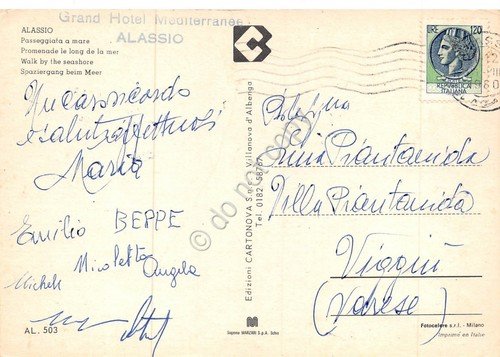 Grand Hotel Méditerranée
ALASSIO
ALASSIO
Passeggiata a mare
Promenade le long de la mer
Walk by the seashore
Spaziergang beim Meer
Un caro ricordo
e saluti affettuosi
Maria
Emilio BEPPE
Nicoletta
Michele Angela
AL. 503
Edizioni CARTONOVA S.a.s. Villanova d'Albenga
Tel. 0182 58767
do not copy
120
REPUBBLICA
ITALIANA
Lina Piantanida
Villa Piantanida
Viggiù
(Varese)
Fotocelere s.r.l. - Milano
Imprimé en Italie